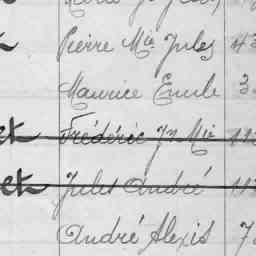 Pierre Mie Jules 43
Maurice Emile 3
et Frédéric Jn Mie
et Jules André
André Alexis 7